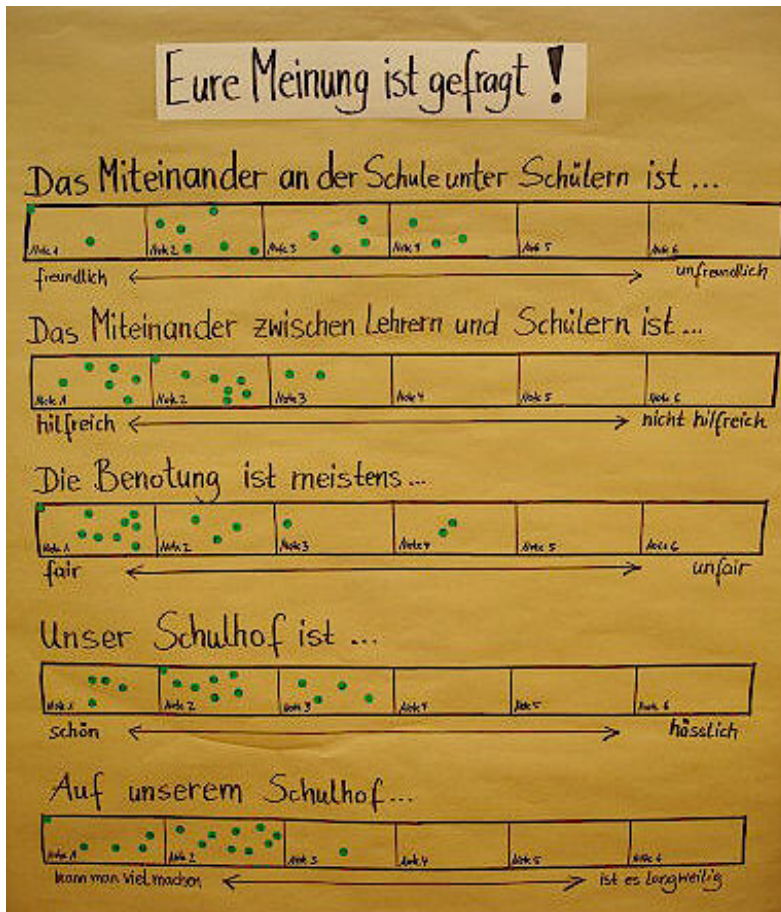 Eure Meinung ist gefragt!
Das Miteinander an der Schule unter Schülern ist ...
Note 1 Note 2 Note 3 Note 4 Note 5 Note 6
freundlich unfreundlich
Das Miteinander zwischen Lehrern und Schülern ist ...
Note 1 Note 2 Note 3 Note 4 Note 5 Note 6
hilfreich nicht hilfreich
Die Benotung ist meistens ...
Note 1 Note 2 Note 3 Note 4 Note 5 Note 6
fair unfair
Unser Schulhof ist ...
Note 1 Note 2 Note 3 Note 4 Note 5 Note 6
schön hässlich
Auf unserem Schulhof ...
Note 1 Note 2 Note 3 Note 4 Note 5 Note 6
kann man viel machen ist es langweilig